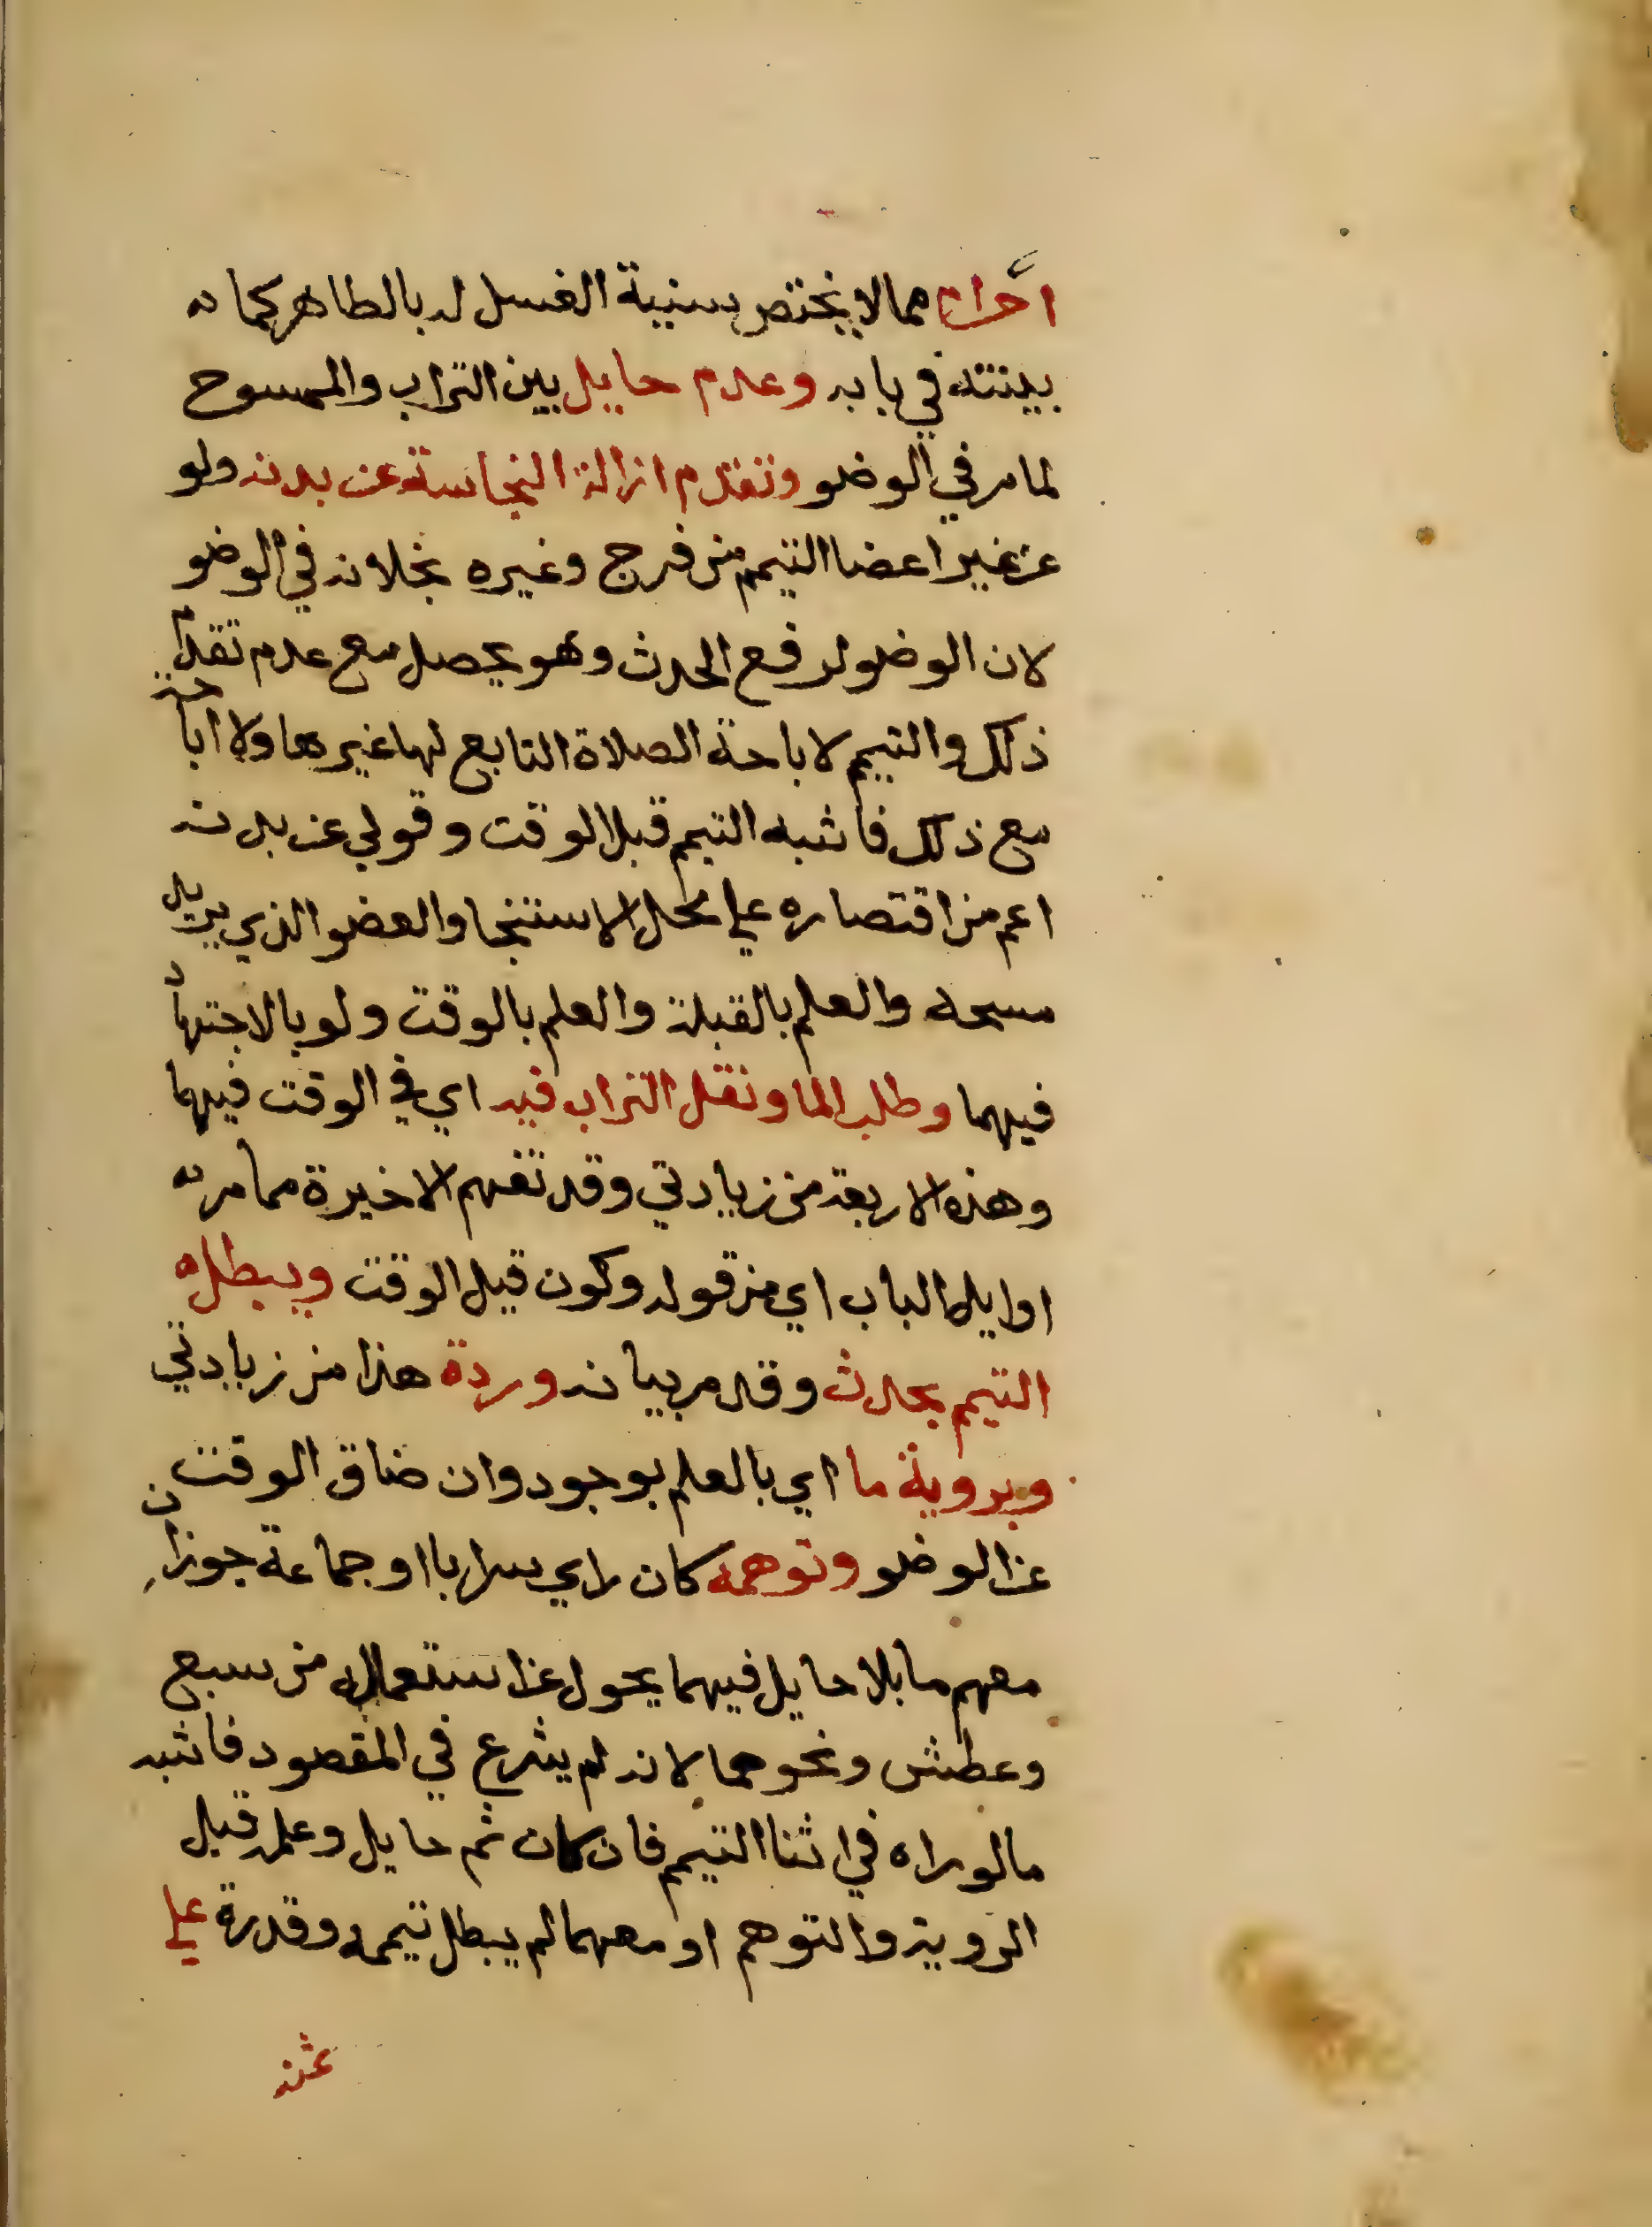 احرام مما لا يختص بسنية الغسل له بالطاهر كما
بينته في بابه وعدم حايل بين التراب والممسوح
لما مر في الوضو وتقدم ازالة النجاسة عن بدنه ولو
عن غير اعضا التيمم من فرج وغيره بخلافه في الوضو
لان الوضو لرفع الحدث وهو يحصل مع عدم تقدم
ذلك والتيمم لاباحة الصلاة التابع لها غيرها ولا اباحة
مع ذلك فاشبه التيمم قبل الوقت وقولي عن بدنه
اعم من اقتصاره علي محل الاستنجا والعضو الذي يريد
مسحه والعلم بالقبلة والعلم بالوقت ولو بالاجتهاد
فيهما وطلب الما ونقل التراب فيه اي في الوقت فيهما
وهذه الاربعة من زيادتي وقد تفهم الاخيرة مما مر
اوايل الباب اي من قوله وكون قبل الوقت ويبطل
التيمم بحدث وقد مر بيانه وردة هذا من زيادتي
وبروية ما اي بالعلم بوجود وان ضاق الوقت
عن الوضو وتوهمه كان راي سرابا او جماعة جوز ان
معهم ما بلا حايل فيهما يحول عن استعماله من سبع
وعطش ونحوهما لانه لم يشرع في المقصود فاشبه
ما لو راه في اثنا التيمم فان كان ثم حايل وعلمه قبل
الروية والتوهم او معهما لم يبطل تيممه وقدرة علي
ثمنه